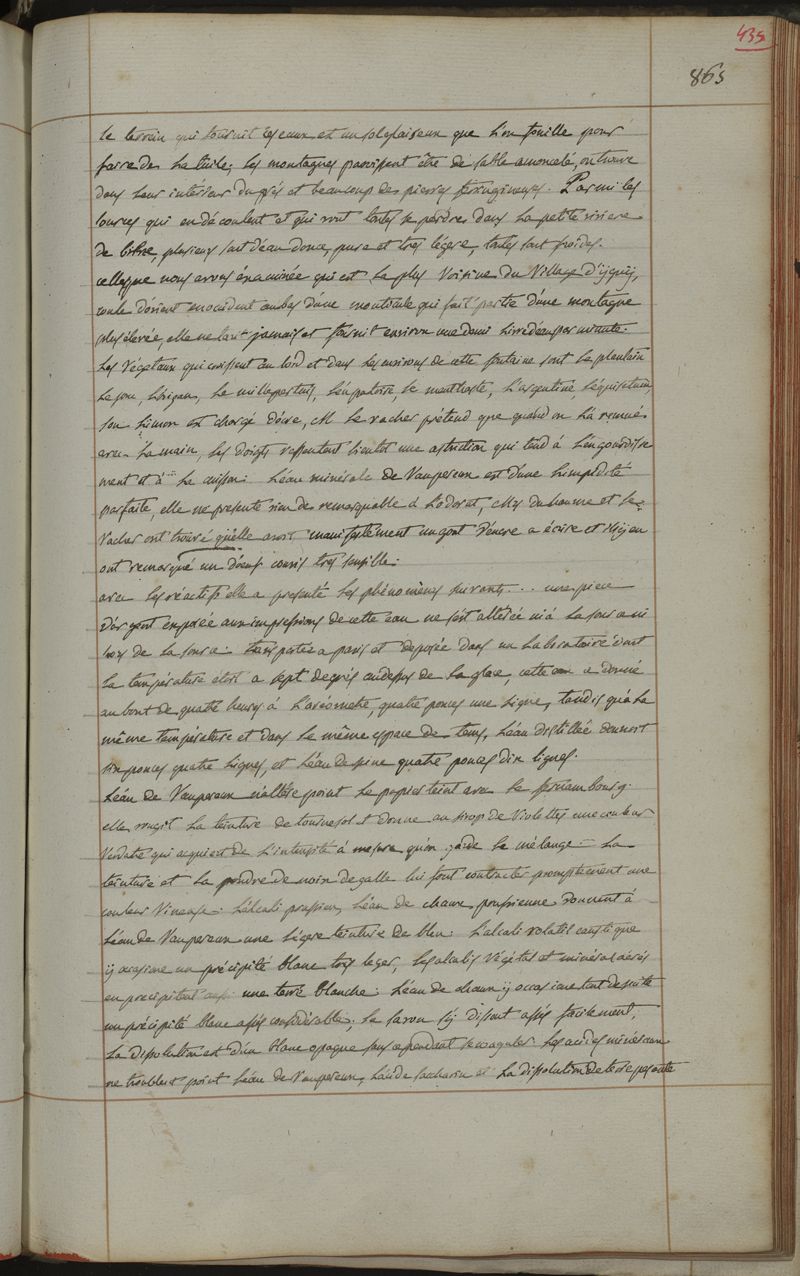 435
865
le terrein qui fournit ces eaux est un sol glaiseux que l'on fouille pour
faire de la tuile, les montagnes paroissent être de sable amoncelé, on trouve
dans leur interieur du grés et beaucoup des pierres ferrugineuses. Parmi les
sources qui en découlent et qui vont toutes se perdre dans la petite riviere
de, plusieurs sont d'eau douce, pure et tres légere, toutes sont froides.
celle que nous avons éxaminée qui est la plus Voisine du Village d'igny,
coule d'orient en occident au bas d'une monticule qui fait partie d'une montagne
plus élevée, elle ne tarit jamais et fournit environ une demi livre d'eau par minute.
les Végétaux qui croissent au bord et dans les environs de cette fontaine sont le plantain
le jonc, l'origan, le millepertuis, l'éupatoire, le menthastre, l'argentine, l'équisetum,
son limon est chargé d'ocre, M. le vacher prétend que quand on l'a remué
avec la main, les doigts ressentent bientot une astriction qui tend à l'engourdisse
ment et à la cuisson. L'éau minérale de Vaupereux est d'une limpidité
parfaite, elle ne presente rien de remarquable à l'odorat, Mrs duhaume et le
Vacher ont trouvé qu'elle avoit manifestement un gout d'encre a écrire et
ont remarqué un d'oeufs couvis tres sensible.
avec les réactifs elle a presenté les phénomènes suivants... une piece
d'argent exposée aux impressions de cette eau ne s'est altérée ni à la source ni
hors de la source. transportée a paris et deposée dans un laboratoire dont
la température étoit a sept degrés audessus de la glace, cette eau a donné
au bout de quatre heures à l'aréometre, quatre pouces une ligne, tandis qu'à la
même température et dans le même espace de tems, l'éau distillée donnoit
six pouces quatre lignes, et l'éau de seine quatre pouces dix lignes.
L'éau de Vaupereux n'altére point le papier teint avec le fernambourg.
elle rougit la teinture de tournesol et donne au sirop de Violettes une couleur
Verdatre qui acquiert de l'intensité à mesure qu'on garde le mélange. La
teinture et la poudre de noix de galle lui font contracter promptement une
couleur Vineuse. L'alcali prussien, l'éau de chaux prussienne donnent à
l'éau de Vaupereux une légere teinture de bleu. L'alcali volatil caustique
y occasione un précipité blanc tres leger, les alcalis Végétal et minéral aérés
en precipitent aussi une terre blanche. L'éau de chaux y occasione tout de suite
un précipité blanc assés considérable. Le savon s'y dissout assés facilement,
la dissolution est d'un blanc opaque sans cependant se coaguler. Les acides minéraux
ne troublent point l'éau de Vaupereux, l'acide saccharin et la dissolution de terre pesante